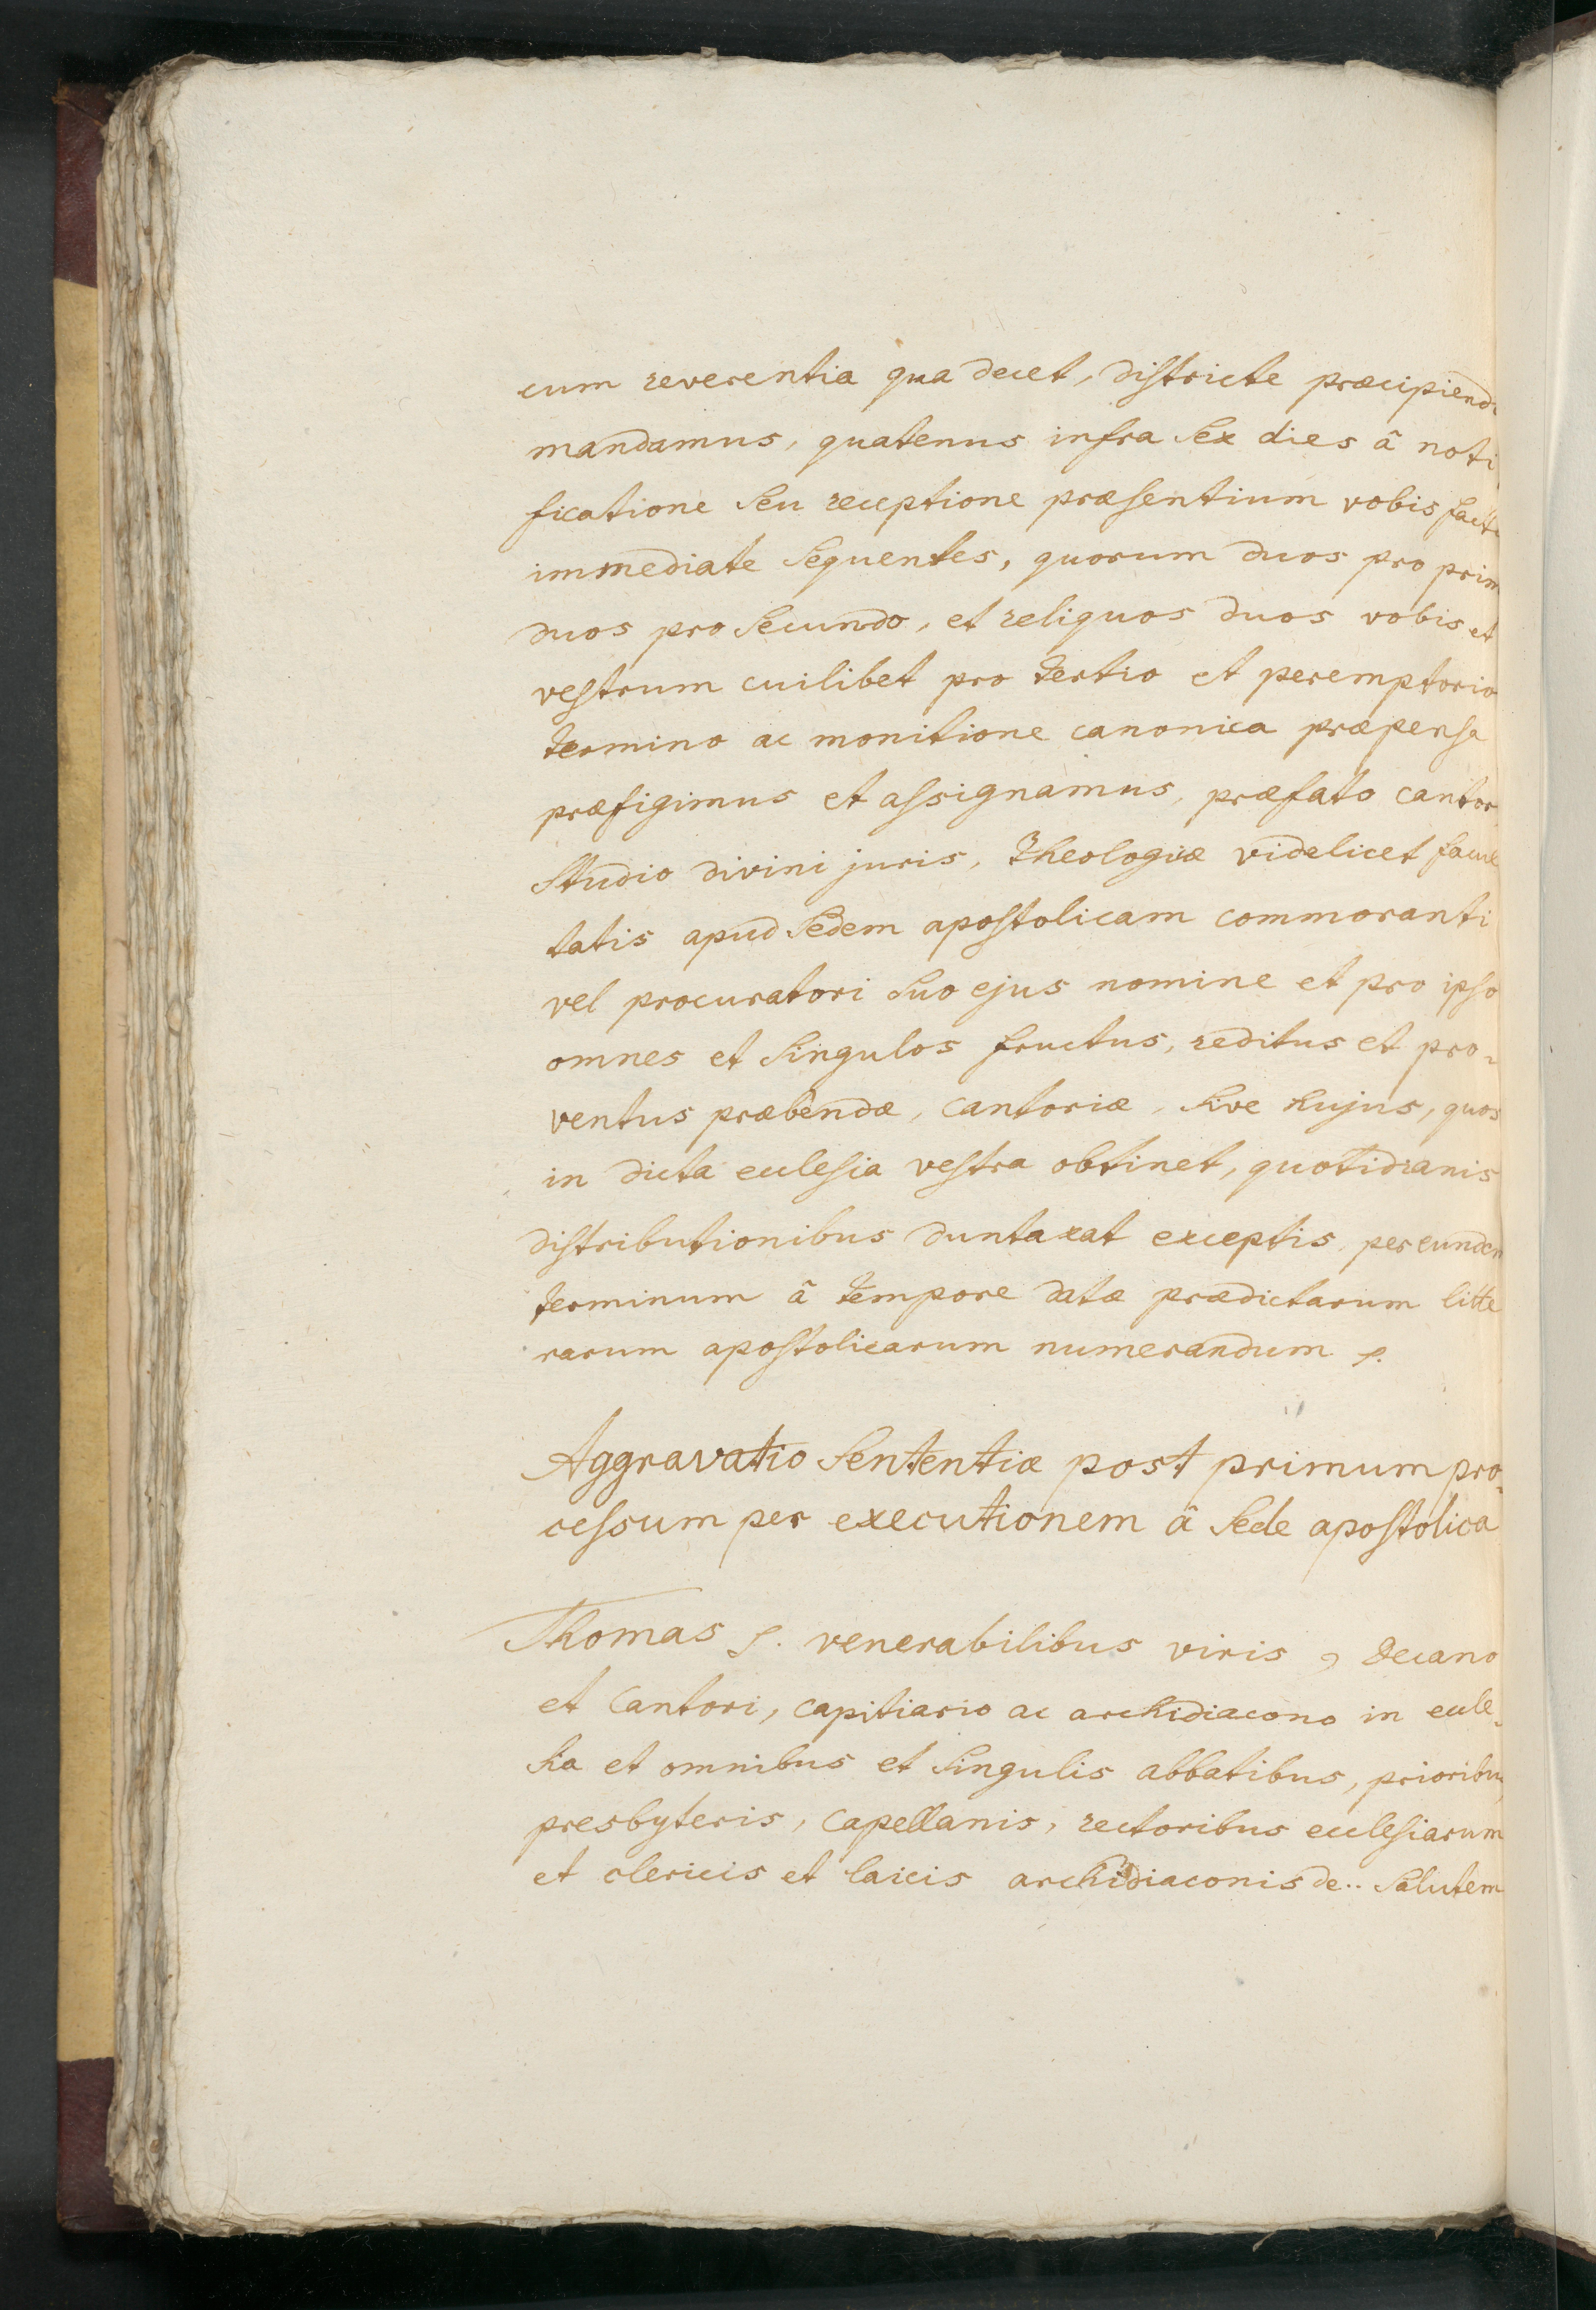 cum reverentia qua decet, districte præcipiend
mandamus, quatenus infra sex dies â noti
ficatione seu receptione præsentium vobis fact
immediate sequentes, quorum duos pro prim
duos pro secundo, et reliquos duos vobis et
vestrum cuilibet pro tertio et peremptorio
termino ac monitione canonica præpensa
præfigimus et assignamus, præfato cantor
studio divini juris, theologiæ videlicet facul
tatis apud sedem apostolicam commoranti
vel procuratori suo ejus nomine et pro ipso
omnes et singulos fructus, reditus et pro-
ventus præbendæ, cantoriæ, sive hujus, quos
in dicta ecclesia vestra obtinet, quotidianis
distributionibus duntaxat exceptis, per eundem
terminum â tempore datæ prædictarum litte
rarum apostolicarum numerandum
Aggravatio sententiæ post primum pro-
cessum per executionem â sede apostolica
Thomas S. venerabilibus viris, Decano
et Cantori, capitiario ac archidiacono in eccle-
sia et omnibus et singulis abbatibus, prioribus,
presbyteris, capellanis, rectoribus ecclesiarum
et clericis et laicis archidiaconis de.. salutem